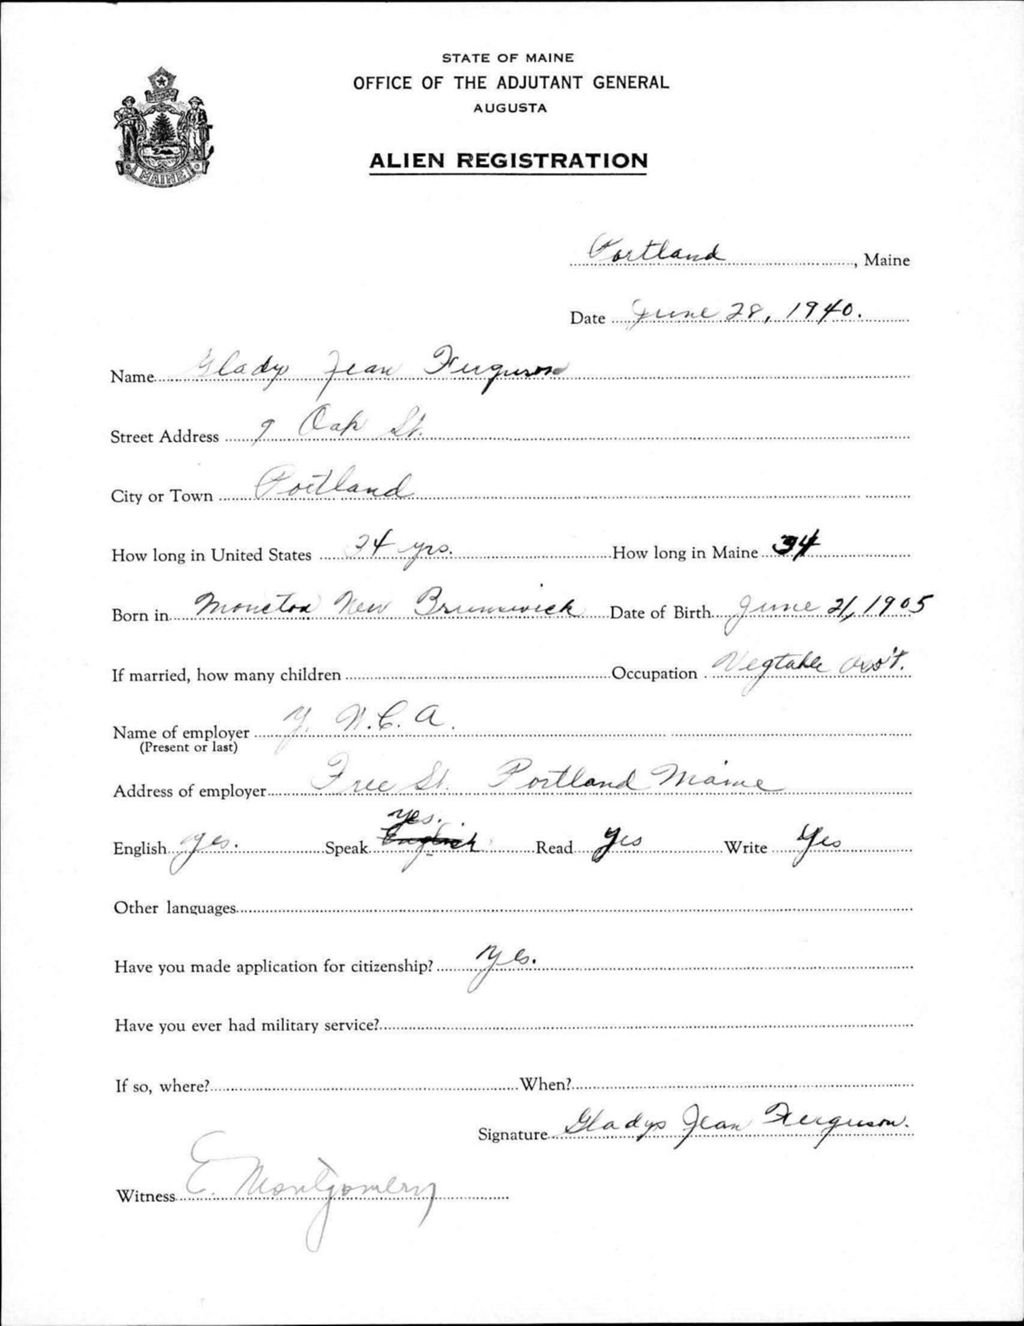 STATE OF MAINE
OFFICE OF THE ADJUTANT GENERAL
AUGUSTA
ALIEN REGISTRATION
MAINE
Portland, Maine
Date June 28, 1940.
Name Gladys Jean Ferguson
Street Address 9 Oak St.
City or Town Portland
How long in United States 34 yrs. How long in Maine 34
Born in Moncton New Brunswick Date of Birth June 21, 1905
If married, how many children Occupation Vegtable
Name of employer Y. W. C. A.
(Present or last)
Address of employer Free St. Portland Maine
yes.
English yes. Speak English Read Yes Write Yes
Other languages
Have you made application for citizenship? Yes.
Have you ever had military service?
If so, where? When?
Signature Gladys Jean Ferguson.
Witness E. Montgomery